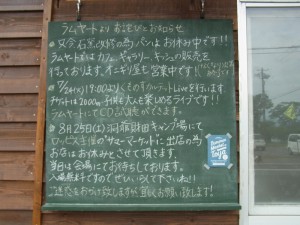 ラムヤートより お詫びとお知らせ
石窯以外の為パンはお休み中です!!
ラムヤートではカフェ、ギャラリー、キッシュの販売を
行っております。オニギリ屋も営業中です!!
7/24(火)19:00より Liveを行います
チケットは2000円 子供も大人も楽しめるライブです!!
ラムヤートにてCD試聴ができます。
8月25日(土) 洞爺財田キャンプ場にて
ロッピス主催のサマーマーケットに出店の為
お店はお休みとさせて頂きます。
当日は会場にてお待ちしております。
入場無料ですのでぜひいらして下さいね!!
ご迷惑をおかけ致しますが宜しくお願い致します!